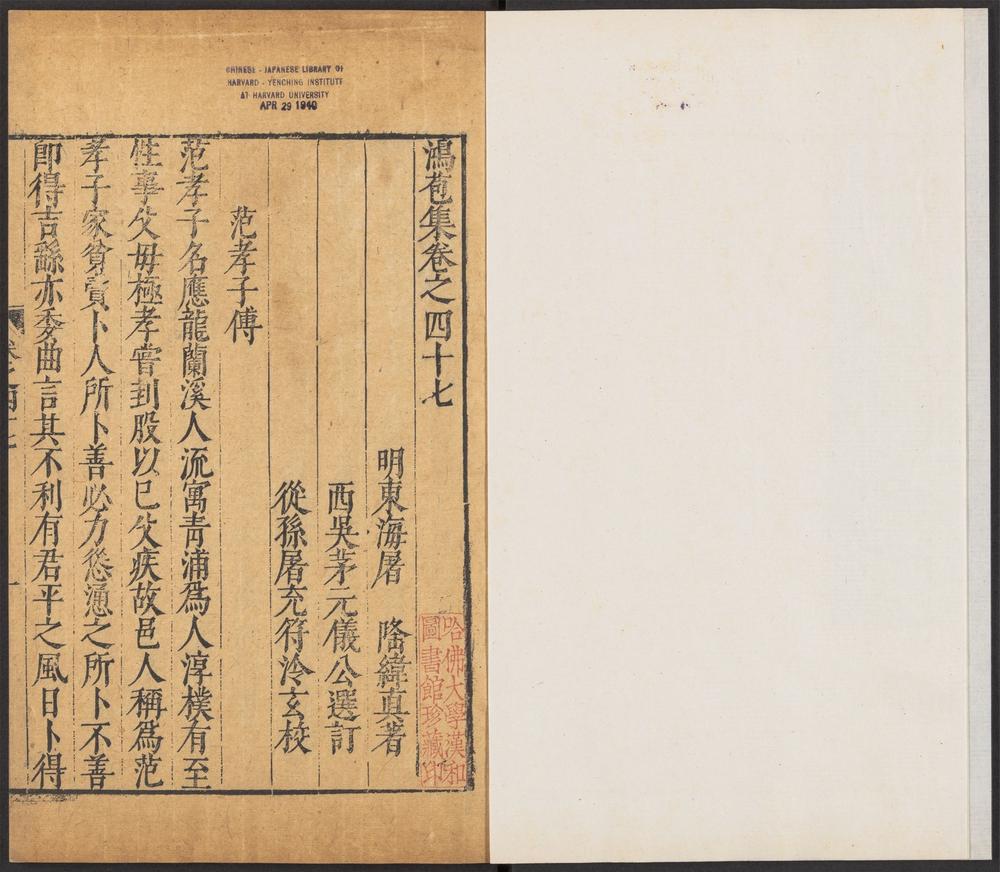 CHINESE - JAPANESE LIBRARY OF
HARVARD - YENCHING INSTITUTE
AT HARVARD UNIVERSITY
APR 29 1940
鴻苞集卷之四十七
明東海屠　隆緯真著
西吳茅元儀公選訂
從孫屠充符泠玄校
范孝子傳
范孝子名應龍蘭溪人流寓青浦為人淳樸有至
性事父母極孝嘗刲股以已父疾故邑人稱為范
孝子家貧賣卜人所卜善必力慫慂之所卜不善
即得吉繇亦委曲言其不利有君平之風日卜得
哈佛大學漢和
圖書館珍藏印
卷之四十七
一